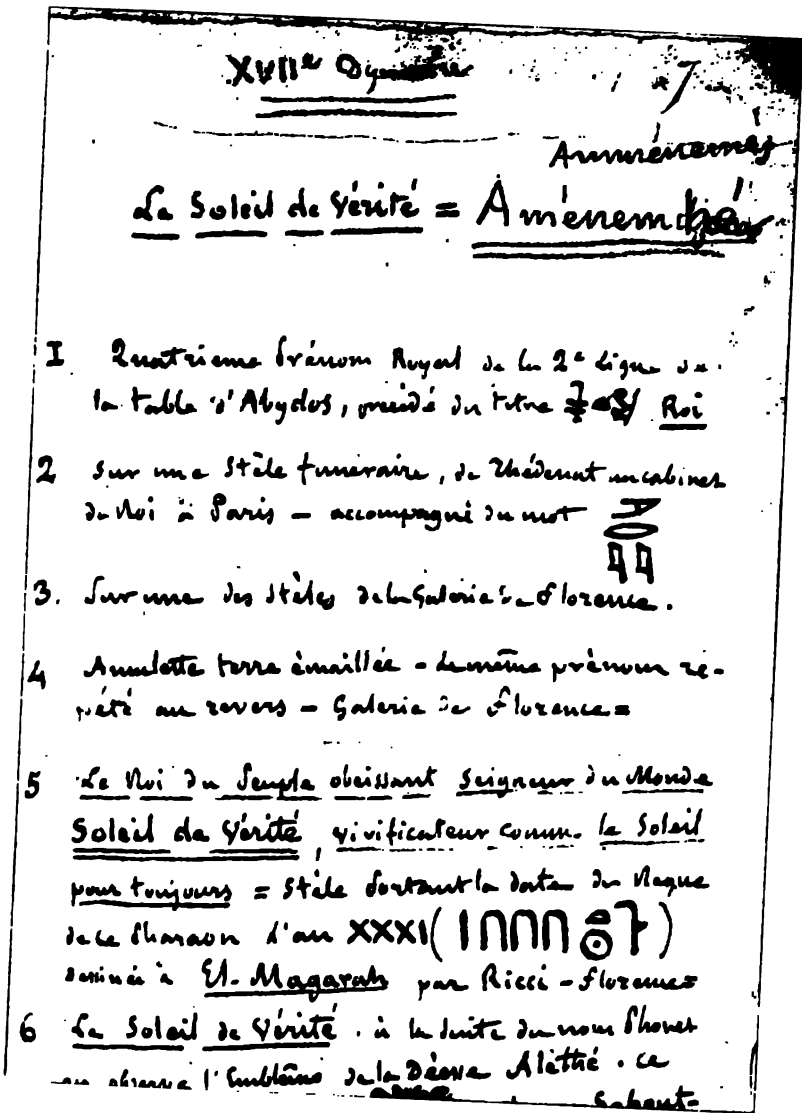 XVIIe Dynastie
7
Amménemés
Le Soleil de Vérité = Aménem
I Quatrieme Prénom Royal de la 2e Ligne de
la table d'Abydos, précédé du titre Roi
2 Sur une Stèle funéraire, de Thédenat au cabinet
du Roi à Paris – accompagné du mot
3. Sur une des Stèles de la Galerie de Florence.
4 Amulette terre émaillée – le même prénom ré-
pété au revers – Galerie de Florence =
5 Le Roi du Peuple obeissant Seigneur du Monde
Soleil de Vérité, vivificateur comme le Soleil
pour toujours = Stèle portant la date du Règne
de ce Pharaon l'an XXXI ( )
dessinée à El-Magarah par Ricci – florence =
6 Le Soleil de Vérité. à la suite du nom Phonet
on observe l'Emblème de la Déesse Aléthé. ce